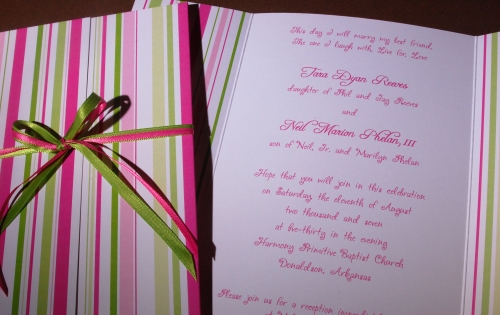 This day I will marry my best friend,
The one I laugh with, Live for, Love
Tara Dyan Reeves
daughter of Phil and Joy Reeves
and
Neil Marion Phelan, III
son of Neil, Jr. and Marilyn Phelan
Hope that you will join in this celebration
on Saturday, the eleventh of August
two thousand and seven
at five-thirty in the evening
Harmony Primitive Baptist Church
Donaldson, Arkansas
Please join us for a reception